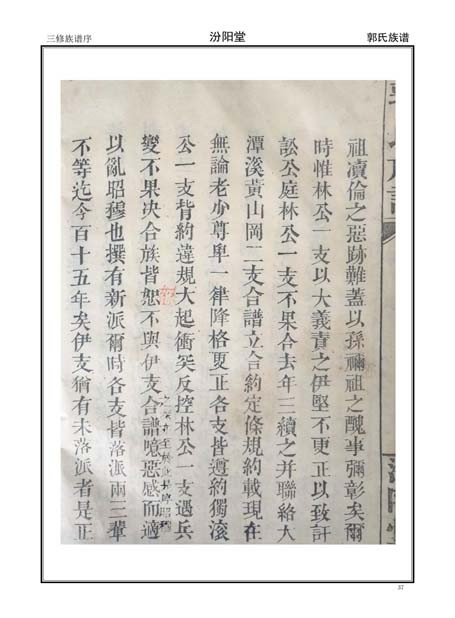 三修族谱序
汾阳堂
郭氏族谱
祖瀆倫之惡跡難蓋以孫禰祖之醜事彌彰矣爾
時惟林公一支以大義責之伊堅不更正以致訐
訟公庭林公一支不果合去年三續之并聯絡大
潭溪黃山岡二支合譜立合約定條規約載現在
無論老少尊卑一律降格更正各支皆遵約獨滾
公一支背約違規大起衝突反控林公一支遇兵
變不果决合族皆恕不與伊支合譜噫惡感而適
以亂昭穆也撰有新派爾時各支皆落派兩三輩
不等迄今百十五年矣伊支猶有未落派者是正
37